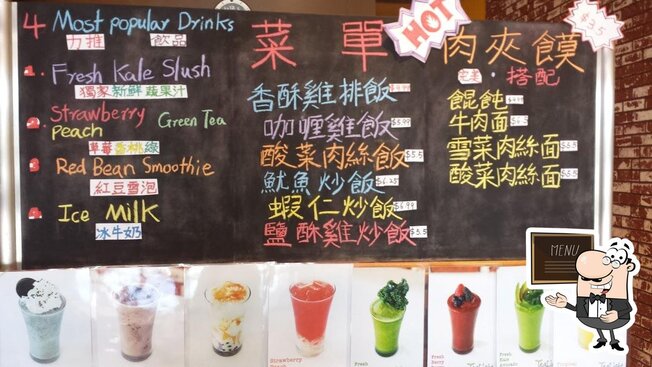 4 Most popular Drinks
力推 飲品
1. Fresh Kale Slush
獨家新鮮蔬果汁
2 Strawberry
Peach Green Tea
草莓香桃綠
3 Red Bean Smoothie
紅豆雪泡
4 Ice Milk
冰牛奶
菜單
香酥雞排飯
咖喱雞飯 $5.99
酸菜肉絲飯 $5.5
魷魚炒飯 $6.25
蝦仁炒飯 $6.99
鹽酥雞炒飯 $5.5
HOT
$3.5
肉夾饃
搭配
餛飩
牛肉面
雪菜肉絲面
酸菜肉絲面
MENU
Strawberry
Fresh
Fresh
Fresh